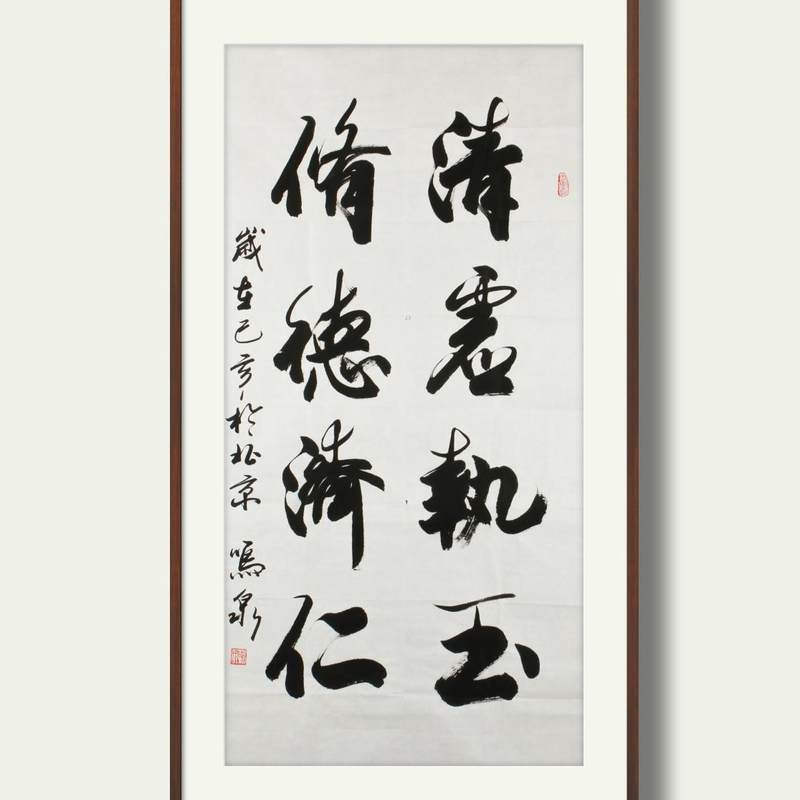 清虚執玉
脩德濟仁
歲在己亥於北京 鳴泉